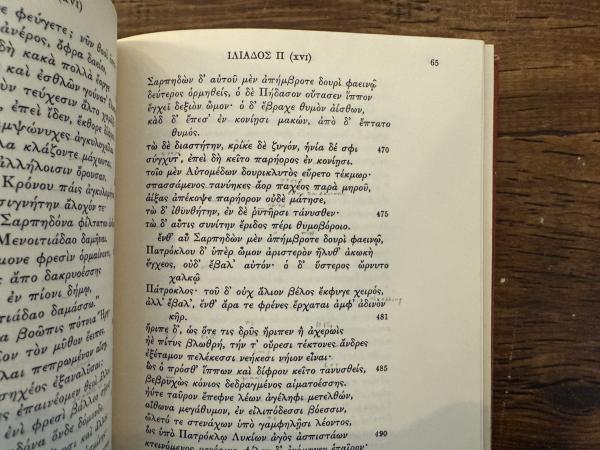 (xvi)
φεύγετε; νῦν
ἀνέρος, ὄφρα
δὴ κακὰ πολλὰ
καὶ ἐσθλῶν
τεύχεσιν ἆλτο
ἐπεὶ ἴδεν, ἔκθορε
κλάζοντε
ἀλλήλοισιν ὄρουσαν.
Κρόνου πάϊς
ἄλοχόν τε·
Σαρπηδόνα
Μενοιτιάδαο δαμῆναι.
φρεσὶν
ἄπο δακρυοέσσης
ἐν πίονι δήμῳ,
δαμάσσω."
βοῶπις πότνια
τὸν μῦθον ἔειπες.
πεπρωμένον αἴσῃ,
ἐξαναλῦσαι;
ἐπαινέομεν θεοὶ
ἐνὶ φρεσὶ βάλλεο
ὅνδε δόμονδε,
ΙΛΙΑΔΟΣ Π (xvi) 65
Σαρπηδὼν δ' αὐτοῦ μὲν ἀπήμβροτε δουρὶ φαεινῷ
δεύτερος ὁρμηθείς, ὁ δὲ Πήδασον οὔτασεν ἵππον
ἔγχεϊ δεξιὸν ὦμον· ὁ δ' ἔβραχε θυμὸν ἀΐσθων,
κὰδ δ' ἔπεσ' ἐν κονίῃσι μακών, ἀπὸ δ' ἔπτατο
θυμός.
τὼ δὲ διαστήτην, κρίκε δὲ ζυγόν, ἡνία δέ σφι 470
σύγχυτ', ἐπεὶ δὴ κεῖτο παρήορος ἐν κονίῃσι.
τοῖο μὲν Αὐτομέδων δουρικλυτὸς εὕρετο τέκμωρ·
σπασσάμενος τανύηκες ἄορ παχέος παρὰ μηροῦ,
ἀΐξας ἀπέκοψε παρήορον οὐδὲ μάτησε,
τὼ δ' ἰθυνθήτην, ἐν δὲ ῥυτῆρσι τάνυσθεν· 475
τὼ δ' αὖτις συνίτην ἔριδος πέρι θυμοβόροιο.
ἔνθ' αὖ Σαρπηδὼν μὲν ἀπήμβροτε δουρὶ φαεινῷ,
Πατρόκλου δ' ὑπὲρ ὦμον ἀριστερὸν ἤλυθ' ἀκωκὴ
ἔγχεος, οὐδ' ἔβαλ' αὐτόν· ὁ δ' ὕστερος ὤρνυτο
χαλκῷ
Πάτροκλος· τοῦ δ' οὐχ ἅλιον βέλος ἔκφυγε χειρός,
ἀλλ' ἔβαλ', ἔνθ' ἄρα τε φρένες ἔρχαται ἀμφ' ἁδινὸν
κῆρ. 481
ἤριπε δ', ὡς ὅτε τις δρῦς ἤριπεν ἢ ἀχερωὶς
ἠὲ πίτυς βλωθρή, τήν τ' οὔρεσι τέκτονες ἄνδρες
ἐξέταμον πελέκεσσι νεήκεσι νήϊον εἶναι·
ὣς ὁ πρόσθ' ἵππων καὶ δίφρου κεῖτο τανυσθείς, 485
βεβρυχὼς κόνιος δεδραγμένος αἱματοέσσης.
ἠΰτε ταῦρον ἔπεφνε λέων ἀγέληφι μετελθών,
αἴθωνα μεγάθυμον, ἐν εἰλιπόδεσσι βόεσσιν,
ὤλετό τε στενάχων ὑπὸ γαμφηλῇσι λέοντος,
ὣς ὑπὸ Πατρόκλῳ Λυκίων ἀγὸς ἀσπιστάων 490
κτεινόμενος μενέαινε, φίλον δ' ὀνόμηνεν ἑταῖρον·